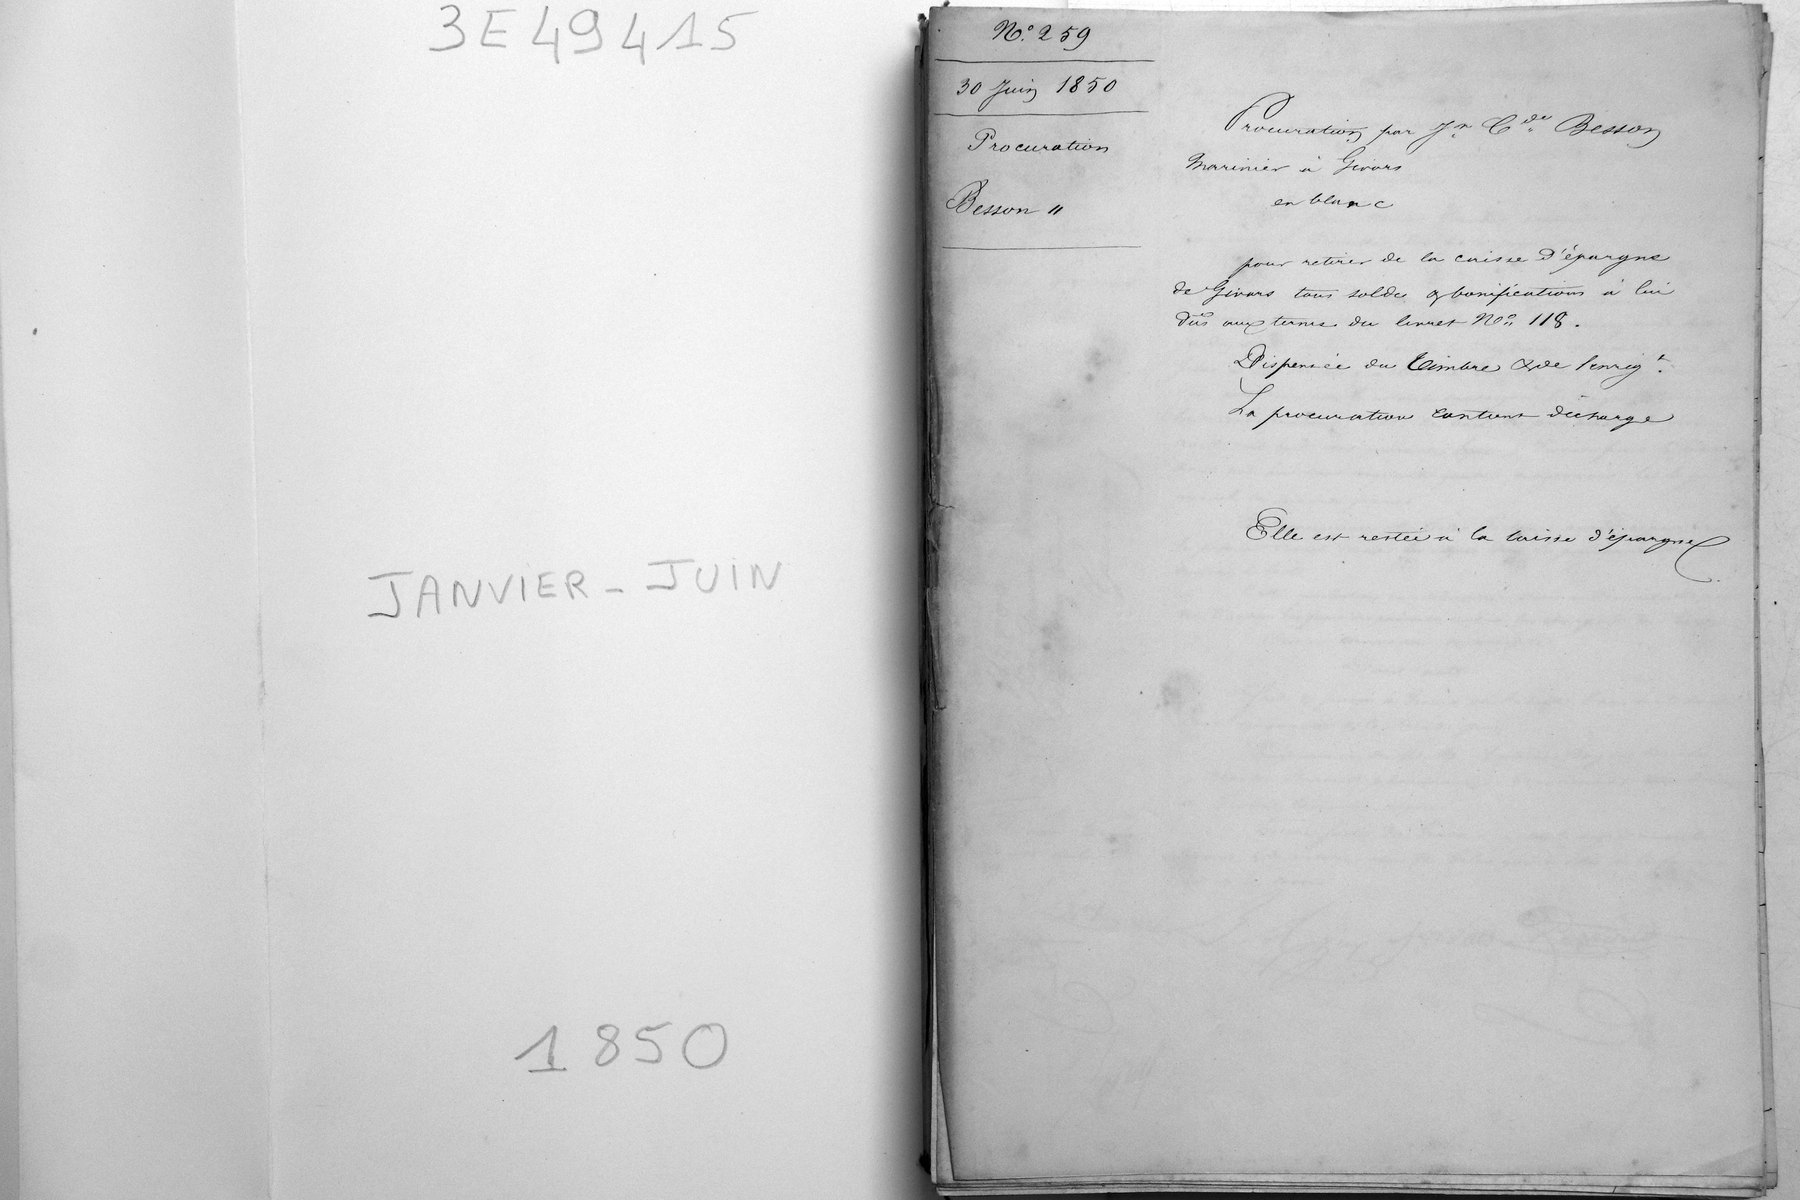 3E49415
JANVIER - JUIN
1850
N.° 259
30 Juin 1850
Procuration
Besson "
Procuration par Jn Cde Besson
Marinier à Givors
en blanc
pour retirer de la caisse d'épargne
de Givors tous solde & bonifications à lui
dûs aux termes du livret No 118.
Dispensée du timbre & de l'enrigt.
La procuration contient décharge
Elle est restée à la caisse d'épargne